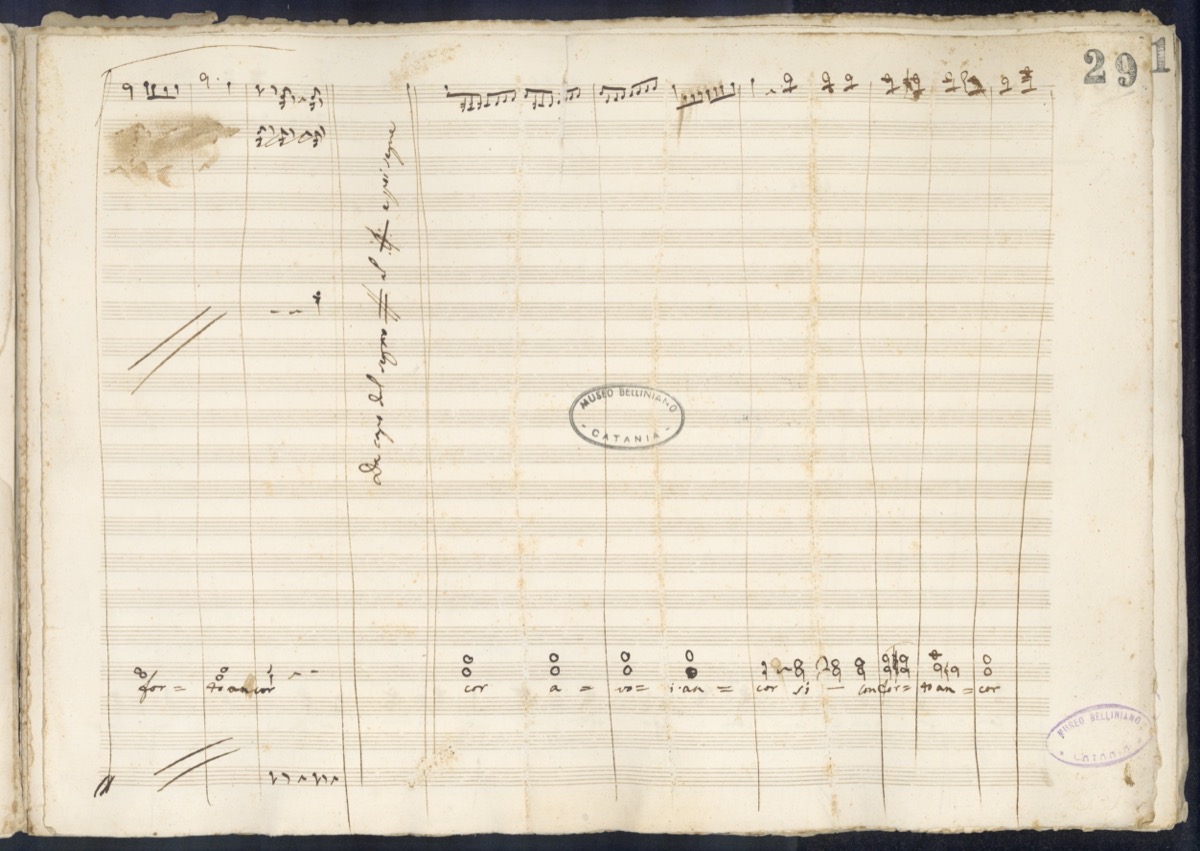 291
Da capo dal segno al e poi segue
MUSEO BELLINIANO
- CATANIA -
for = to ancor
cor a = vo = i an = cor si — confor = to an = cor
MUSEO BELLINIANO
CATANIA